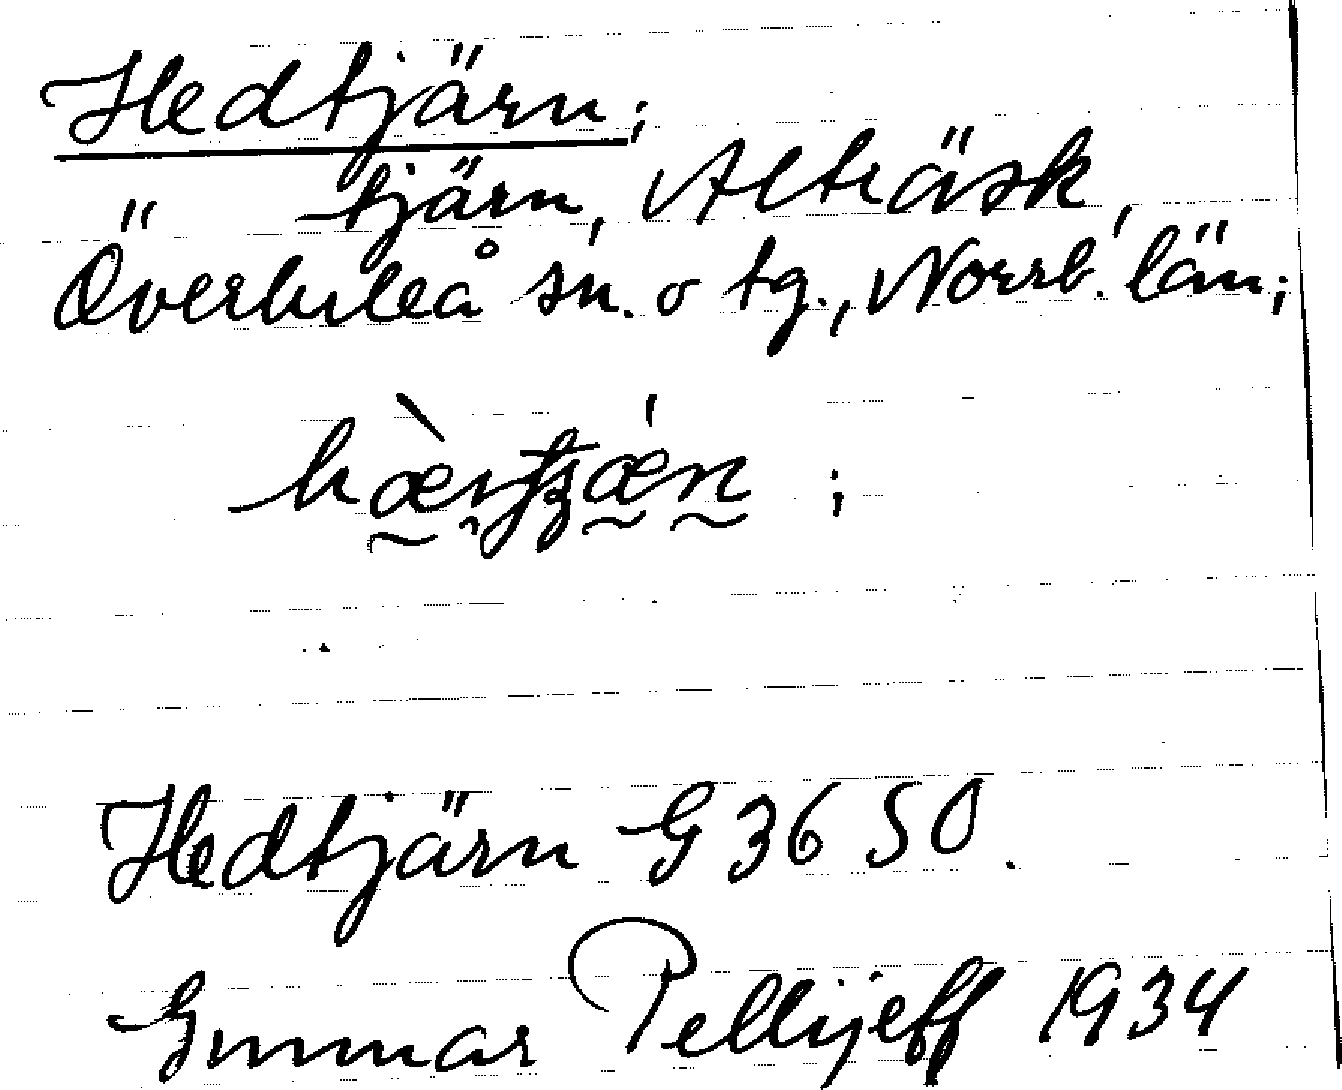 Hedtjärn;
tjärn, Alträsk,
Överluleå sn. o tg., Norrb. län;
Hedtjärn G 3650.
Gunnar Pellijeff 1934